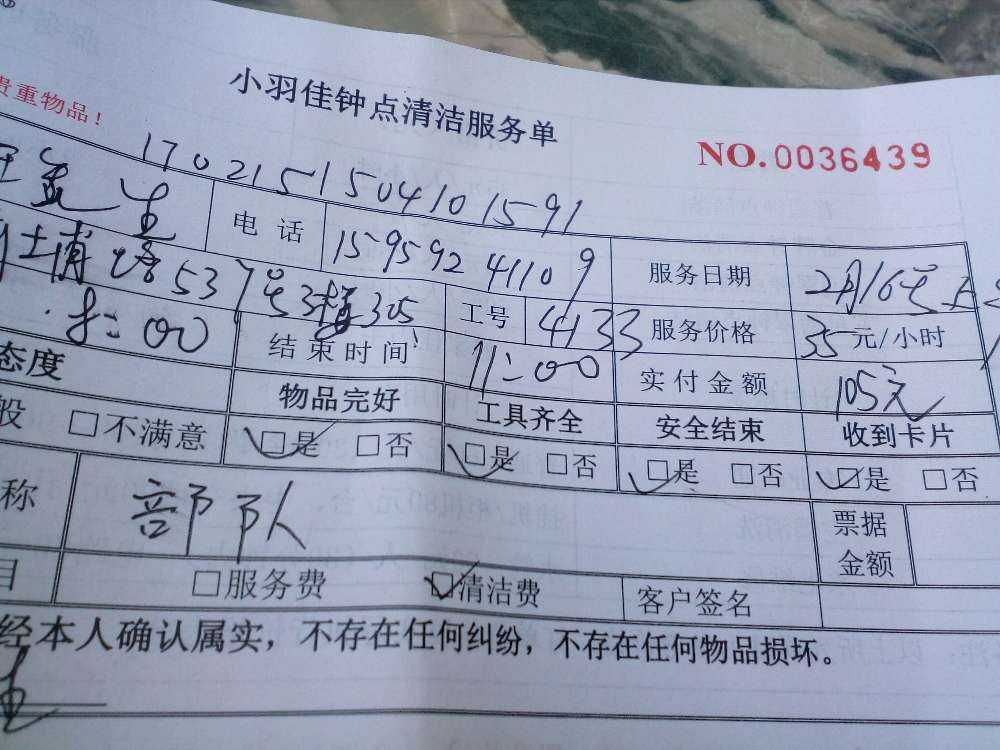 小羽佳钟点清洁服务单
贵重物品！
NO.0036439
1702151504101591
电话 15959241109 服务日期 2月16号上
博 537号3楼305 工号 4133 服务价格 35元/小时
8:00 结束时间 11:00 实付金额 105元
态度 物品完好 工具齐全 安全结束 收到卡片
般 □不满意 □是 □否 □是 □否 □是 □否 □是 □否
称 部队 票据金额
目 □服务费 □清洁费 客户签名
经本人确认属实，不存在任何纠纷，不存在任何物品损坏。